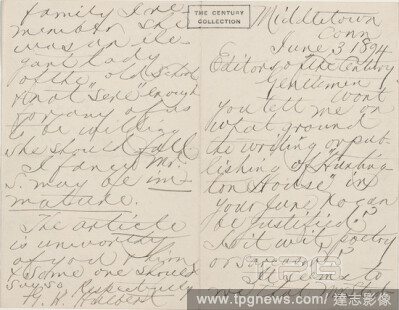 THE CENTURY
COLLECTION
Middletown
Conn
June 3 1894.
Editors, of the Century
Gentlemen,
Wont
You tell me on
what ground
the writing or pub-
lishing of "Hunting
ton House" in
your June No can
be justified?
Is it wit, poetry
or
It seems to
family I re
member She
was an ele-
gant lady
of the "old School
not
for any of us
to be willing
she should fall
I fancy Mr.
S. may be im-
mature.
The article
is unworthy
of you I think
& Some one should
say so Respectfully
H. R. Hulbert
www.tpgnews.com / 達志影像